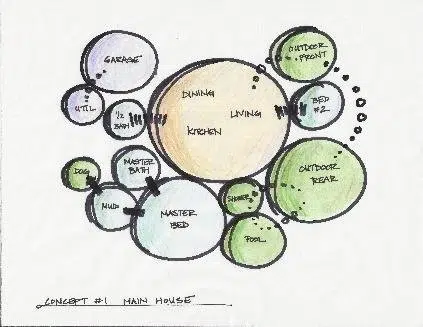 GARAGE
OUTDOOR
FRONT
UTIL
1/2
BATH
DINING
LIVING
KITCHEN
BED
#2
DOG
MASTER
BATH
MUD
MASTER
BED
SHOWER
OUTDOOR
REAR
POOL
CONCEPT #1 MAIN HOUSE